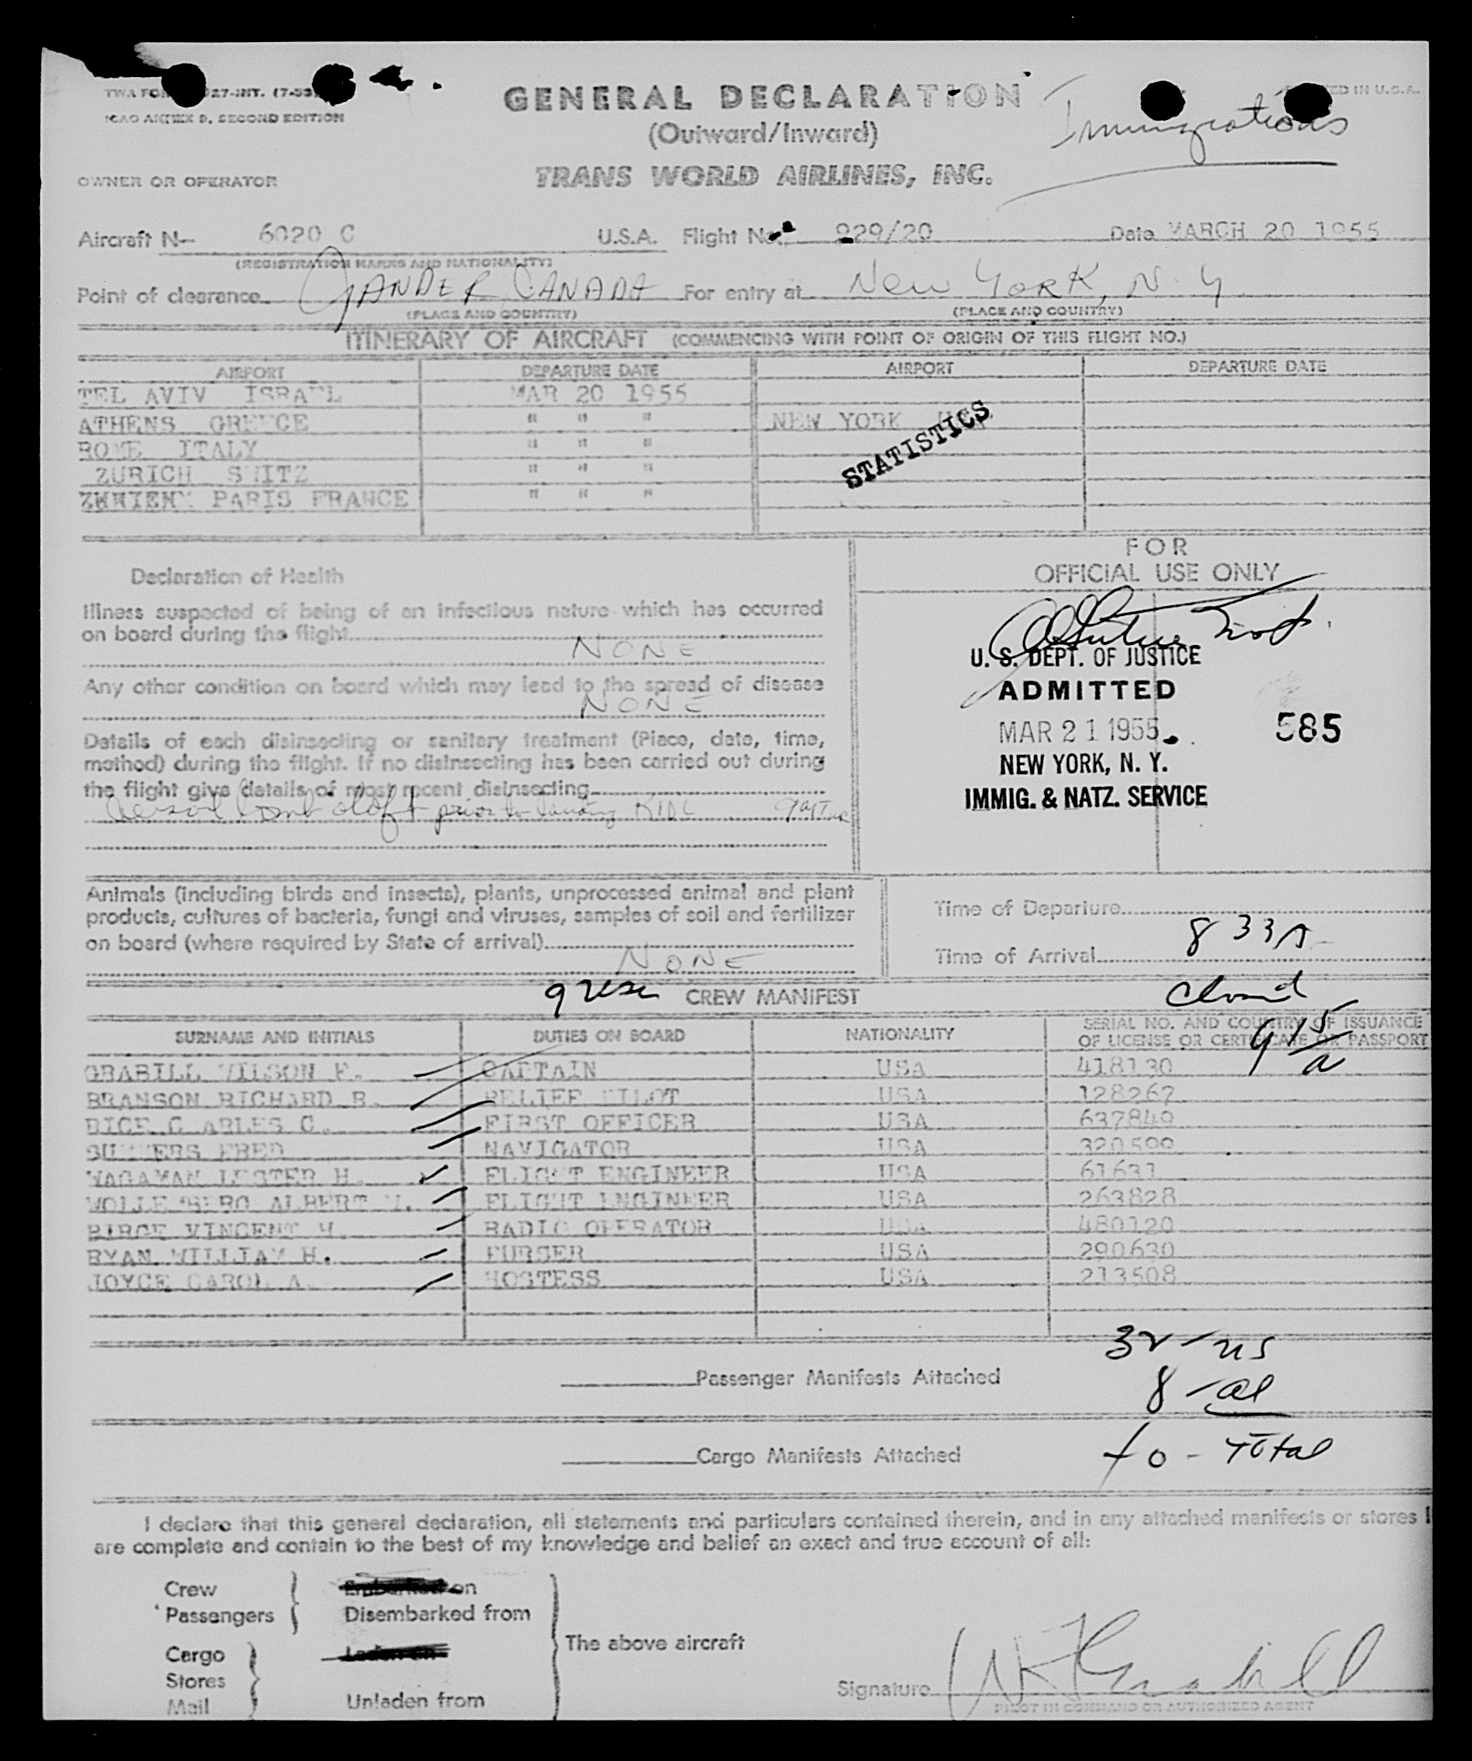 27-INT. (7-53)
ICAO ANNEX 9, SECOND EDITION
GENERAL DECLARATION
(Outward/Inward)
Immigrations
IN U.S.A.
OWNER OR OPERATOR
TRANS WORLD AIRLINES, INC.
Aircraft N- 6020 C U.S.A. Flight No. 929/20 Date MARCH 20 1955
(REGISTRATION MARKS AND NATIONALITY)
Point of clearance GANDER CANADA For entry at New York, N.Y
(PLACE AND COUNTRY) (PLACE AND COUNTRY)
ITINERARY OF AIRCRAFT (COMMENCING WITH POINT OF ORIGIN OF THIS FLIGHT NO.)
AIRPORT DEPARTURE DATE AIRPORT DEPARTURE DATE
TEL AVIV ISRAEL MAR 20 1955
ATHENS GREECE " " " NEW YORK
ROME ITALY " " "
STATISTICS
ZURICH SWITZ " " "
PARIS FRANCE " " "
FOR
OFFICIAL USE ONLY
Declaration of Health
Illness suspected of being of an infectious nature which has occurred
on board during the flight
NONE
Any other condition on board which may lead to the spread of disease
NONE
Details of each disinsecting or sanitary treatment (Place, date, time,
method) during the flight. If no disinsecting has been carried out during
the flight give details of most recent disinsecting
Aerosol bomb aloft prior to landing
U. S. DEPT. OF JUSTICE
ADMITTED
MAR 21 1955
585
NEW YORK, N. Y.
IMMIG. & NATZ. SERVICE
Animals (including birds and insects), plants, unprocessed animal and plant
products, cultures of bacteria, fungi and viruses, samples of soil and fertilizer
on board (where required by State of arrival)
NONE
Time of Departure
Time of Arrival 8 33A
9 CREW MANIFEST
Closed
9 15/a
SURNAME AND INITIALS DUTIES ON BOARD NATIONALITY SERIAL NO. AND COUNTRY OF ISSUANCE
OF LICENSE OR CERTIFICATE OR PASSPORT
GRABILL WILSON F. CAPTAIN USA 418130
BRANSON RICHARD B. RELIEF PILOT USA 128267
RICE CHARLES C. FIRST OFFICER USA 637849
SUMMERS FRED NAVIGATOR USA 320599
WAGAMAN LESTER H. FLIGHT ENGINEER USA 61631
ALBERT FLIGHT ENGINEER USA 263828
VINCENT RADIO OPERATOR USA 480120
RYAN WILLIAM H. PURSER USA 290630
JOYCE CAROL A. HOSTESS USA 213508
32 - us
Passenger Manifests Attached
8 - al
Cargo Manifests Attached
40 - Total
I declare that this general declaration, all statements and particulars contained therein, and in any attached manifests or stores l
are complete and contain to the best of my knowledge and belief an exact and true account of all:
Crew Embarked on
Passengers Disembarked from
The above aircraft
Cargo Laden on
Stores
Mail Unladen from
Signature W F Grabill
PILOT IN COMMAND OR AUTHORIZED AGENT